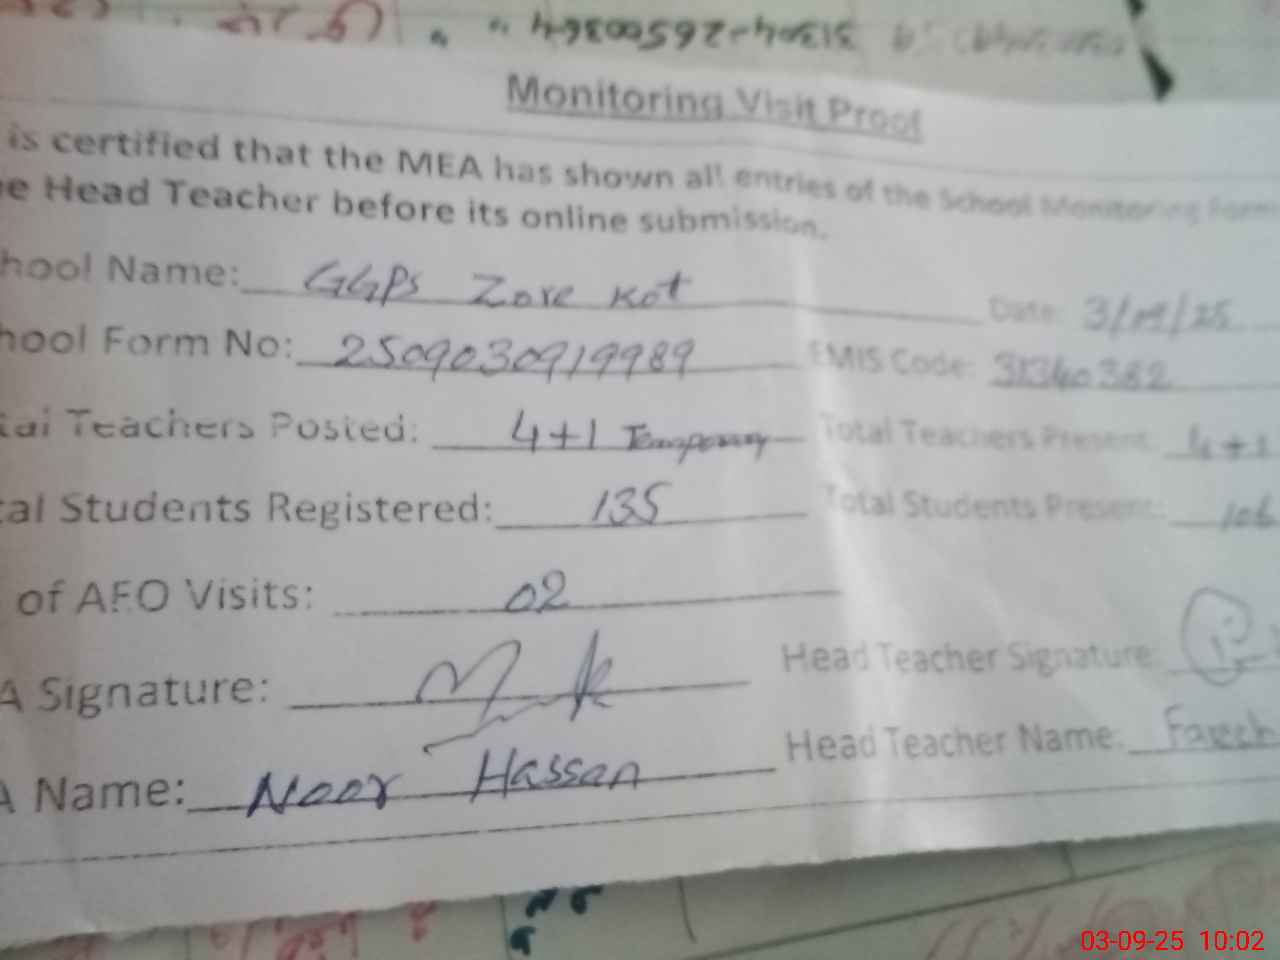 31304-2650036-4
Monitoring Visit Proof
is certified that the MEA has shown all entries of the School Monitoring Form
e Head Teacher before its online submission.
hool Name: GGPS Zore Kot Date: 3/09/25
hool Form No: 2509030919989 EMIS Code: 31340382
tal Teachers Posted: 4+1 Temporary Total Teachers Present: 4+1
tal Students Registered: 135 Total Students Present: 106
of AEO Visits: 02
A Signature: Head Teacher Signature:
A Name: Noor Hassan Head Teacher Name:
03-09-25 10:02